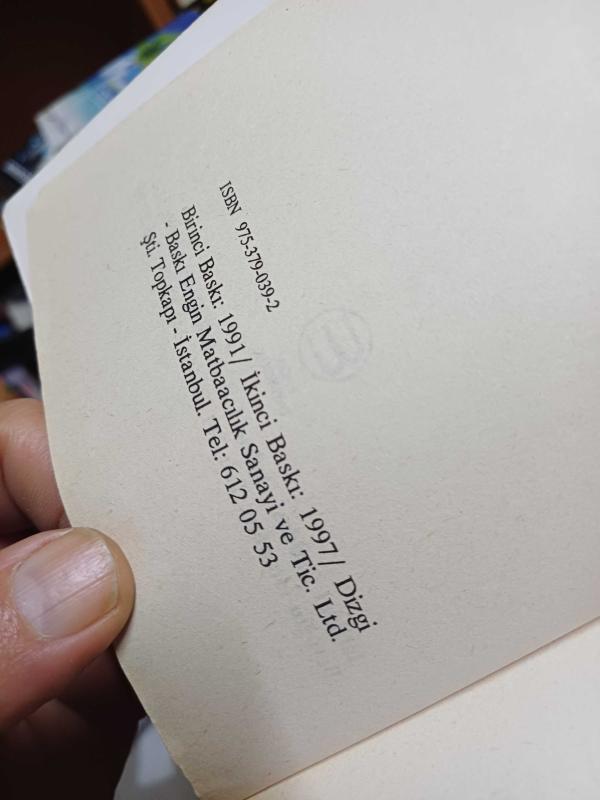 ISBN 975-379-039-2
Birinci Baskı: 1991/ İkinci Baskı: 1997/ Dizgi
- Baskı Engin Matbaacılık Sanayi ve Tic. Ltd.
Şti. Topkapı - İstanbul. Tel: 612 05 53